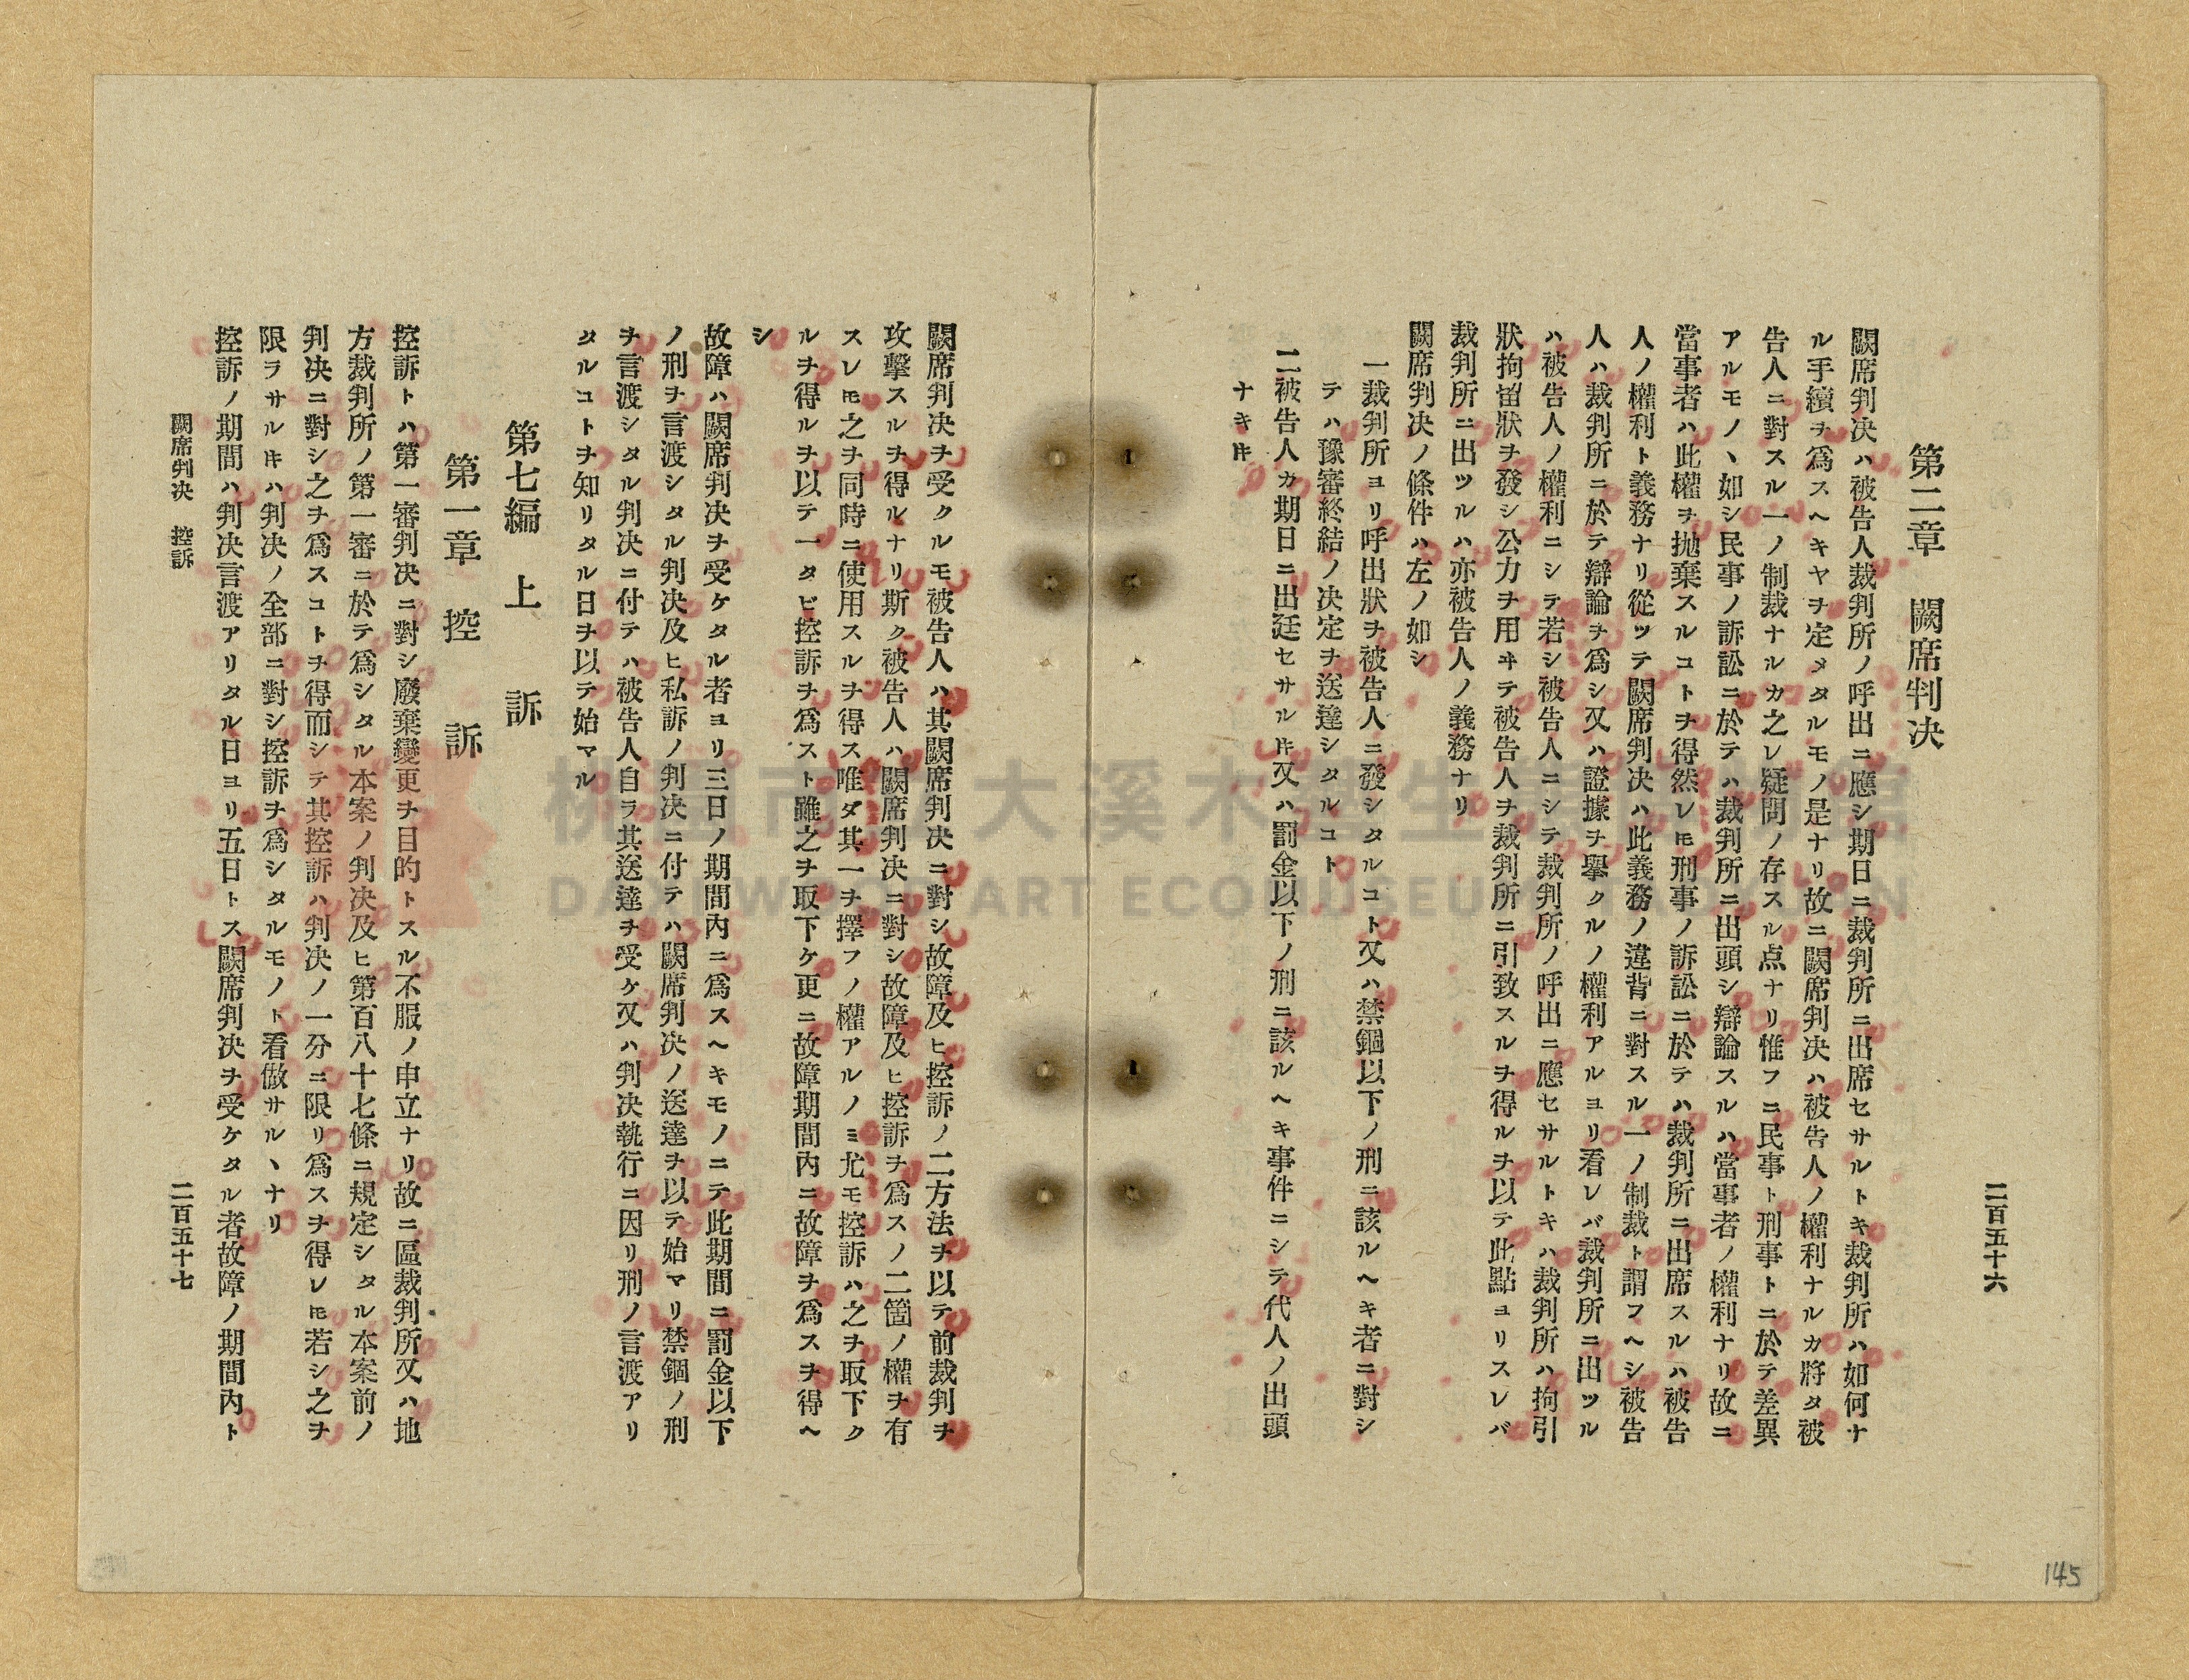 二百五十六
第二章 闕席判決
闕席判決ハ被告人裁判所ノ呼出ニ應シ期日ニ裁判所ニ出席セサルトキ裁判所ハ如何ナ
ル手續ヲ爲スヘキヤヲ定メタルモノ是ナリ故ニ闕席判決ハ被告人ノ權利ナルカ將タ被
告人ニ對スル一ノ制裁ナルカ之レ疑問ノ存スル点ナリ惟フニ民事ト刑事トニ於テ差異
アルモノヽ如シ民事ノ訴訟ニ於テハ裁判所ニ出頭シ辯論スルハ當事者ノ權利ナリ故ニ
當事者ハ此權ヲ抛棄スルコトヲ得然レ𪜈刑事ノ訴訟ニ於テハ裁判所ニ出席スルハ被告
人ノ權利ト義務ナリ從ッテ闕席判決ハ此義務ノ違背ニ對スル一ノ制裁ト謂フヘシ被告
人ハ裁判所ニ於テ辯論ヲ爲シ又ハ證據ヲ擧クルノ權利アルヨリ看レバ裁判所ニ出ツル
ハ被告人ノ權利ニシテ若シ被告人ニシテ裁判所ノ呼出ニ應セサルトキハ裁判所ハ拘引
狀拘留狀ヲ發シ公力ヲ用ヰテ被告人ヲ裁判所ニ引致スルヲ得ルヲ以テ此點ヨリスレバ
裁判所ニ出ツルハ亦被告人ノ義務ナリ
闕席判決ノ條件ハ左ノ如シ
一裁判所ヨリ呼出狀ヲ被告人ニ發シタルコト又ハ禁錮以下ノ刑ニ該ルヘキ者ニ對シ
テハ豫審終結ノ決定ヲ送達シタルコト
二被告人カ期日ニ出廷セサル𬼀又ハ罰金以下ノ刑ニ該ルヘキ事件ニシテ代人ノ出頭
ナキ𬼀
闕席判決ヲ受クルモ被告人ハ其闕席判決ニ對シ故障及ヒ控訴ノ二方法ヲ以テ前裁判ヲ
攻擊スルヲ得ルナリ斯ク被告人ハ闕席判決ニ對シ故障及ヒ控訴ヲ爲スノ二箇ノ權ヲ有
スレ𪜈之ヲ同時ニ使用スルヲ得ス唯ダ其一ヲ擇フノ權アルノミ尤モ控訴ハ之ヲ取下ク
ルヲ得ルヲ以テ一タビ控訴ヲ爲スト雖之ヲ取下ケ更ニ故障期間內ニ故障ヲ爲スヲ得ヘ
シ
故障ハ闕席判決ヲ受ケタル者ヨリ三日ノ期間內ニ爲スヘキモノニテ此期間ニ罰金以下
ノ刑ヲ言渡シタル判決及ヒ私訴ノ判決ニ付テハ闕席判決ノ送達ヲ以テ始マリ禁錮ノ刑
ヲ言渡シタル判決ニ付テハ被告人自ラ其送達ヲ受ケ又ハ判決執行ニ因リ刑ノ言渡アリ
タルコトヲ知リタル日ヲ以テ始マル
第七編 上 訴
第一章 控 訴
控訴トハ第一審判決ニ對シ廢棄變更ヲ目的トスル不服ノ申立ナリ故ニ區裁判所又ハ地
方裁判所ノ第一審ニ於テ爲シタル本案ノ判決及ヒ第百八十七條ニ規定シタル本案前ノ
判決ニ對シ之ヲ爲スコトヲ得而シテ其控訴ハ判決ノ一分ニ限リ爲スヲ得レ𪜈若シ之ヲ
限ラサル𬼀ハ判決ノ全部ニ對シ控訴ヲ爲シタルモノト看做サルヽナリ
控訴ノ期間ハ判決言渡アリタル日ヨリ五日トス闕席判決ヲ受ケタル者故障ノ期間內ト
闕席判決 控訴
二百五十七
145
DAXI WOOD ART ECOMUSEUM, TAOYUAN